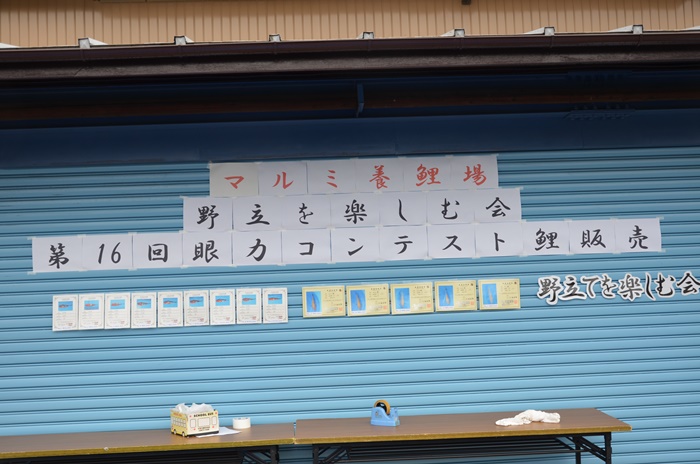 マルミ養鯉場
野立を楽しむ会
第16回眼力コンテスト鯉販売
野立てを楽しむ会